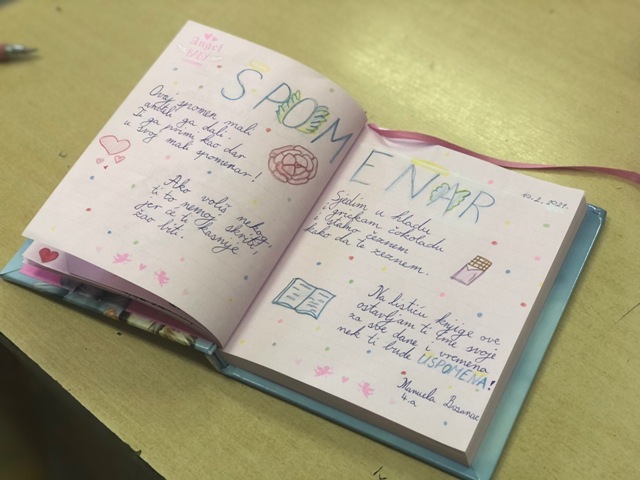 Angel
SPOM
Ovaj spomen mali
anđeli ga dali.
I ga primi kao dar
u svoj mali spomenar!
Ako voliš nekog,
ti to nemoj skriti,
jer će ti kasnije
žao biti.
ENAR
10.2.2021.
Sjedim u hladu
grickam čokoladu
i stalno čeznem
kako da te zeznem.
Na listiću knjige ove
ostavljam ti ime svoje
za sve dane i vremena
nek ti bude USPOMENA!
Manuela
4.a